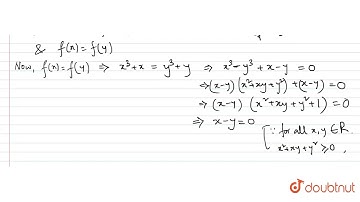 & f(x) = f(y)
Now, f(x) = f(y) ⇒ x³+x = y³+y ⇒ x³-y³+x-y = 0
⇒ (x-y)(x²+xy+y²)+(x-y) = 0
⇒ (x-y)(x²+xy+y²+1) = 0
⇒ x-y = 0
[∵ for all x,y ∈ R
x²+xy+y² ≥ 0,
doubtnut